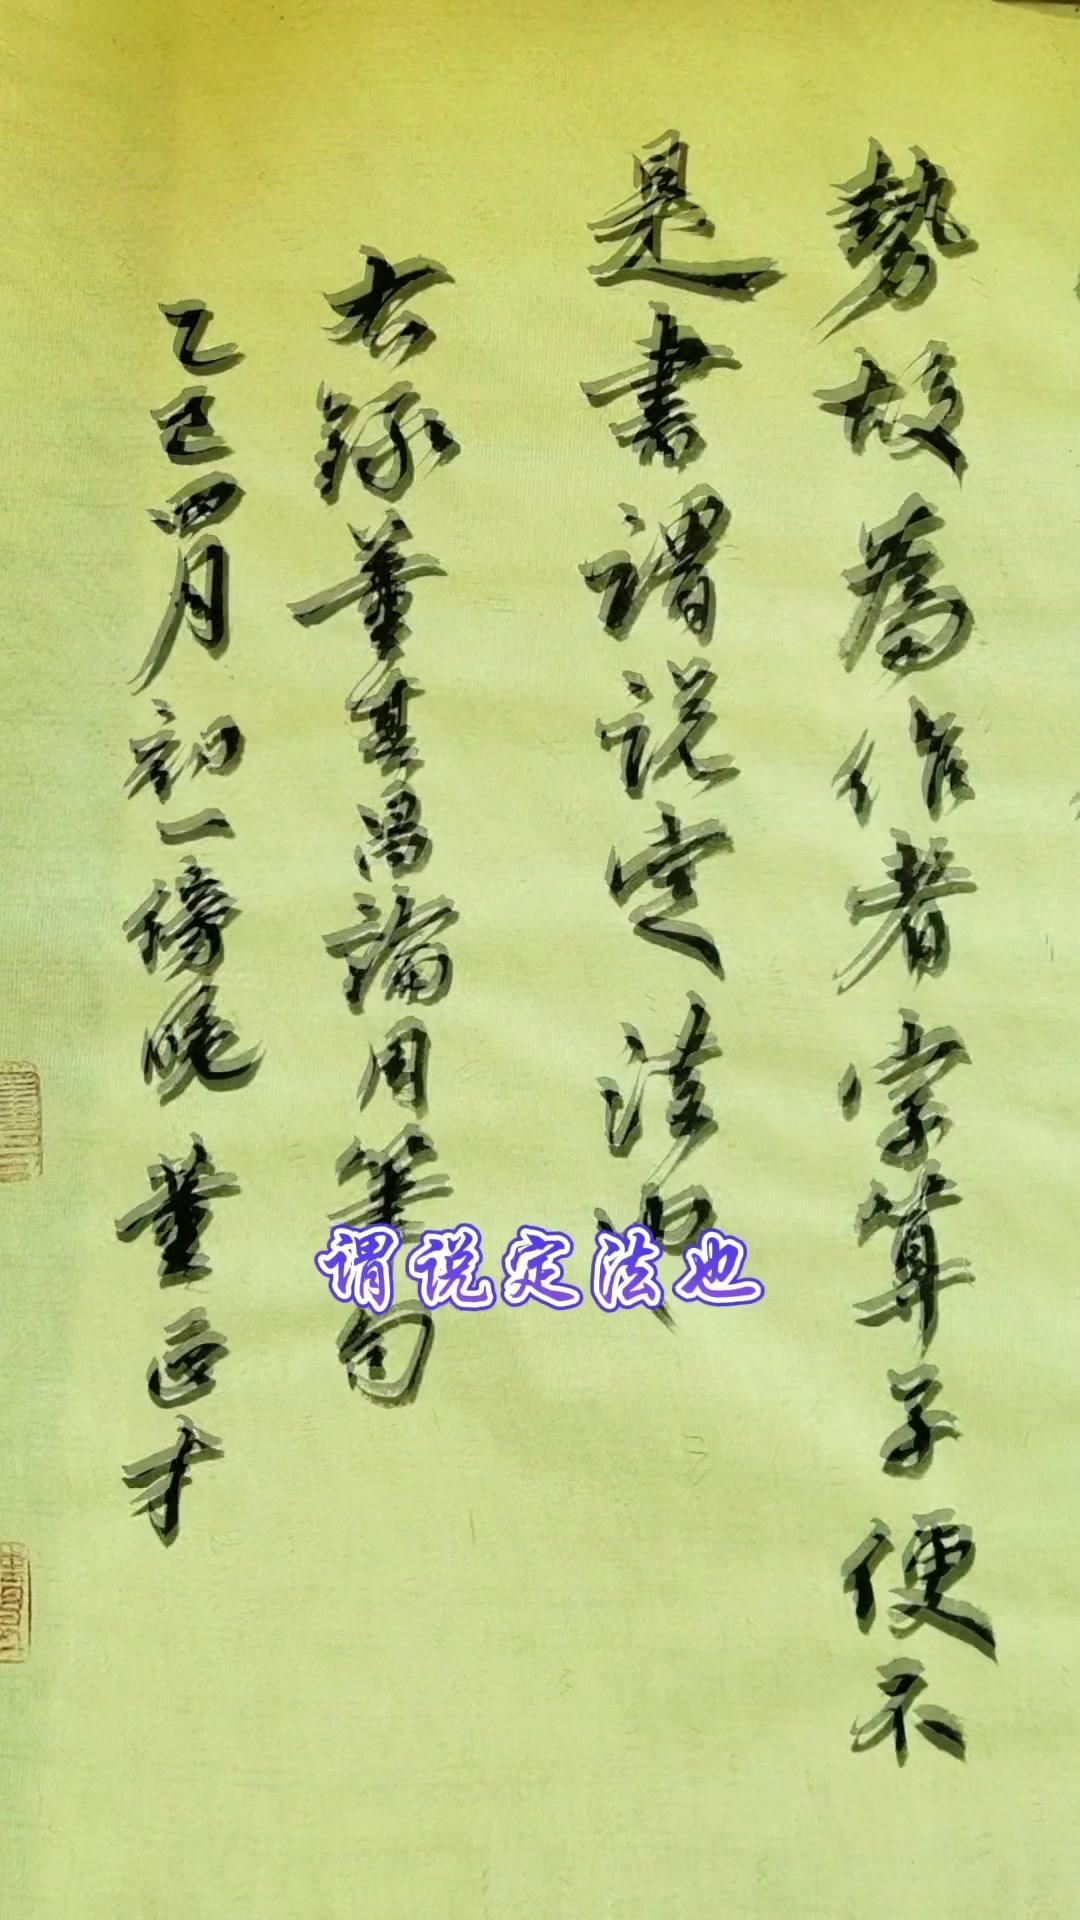 勢故為作者字算子便不
是書謂说定法也
右録董其昌論用筆句
乙巳四月初一傍晚董正才
谓说定法也